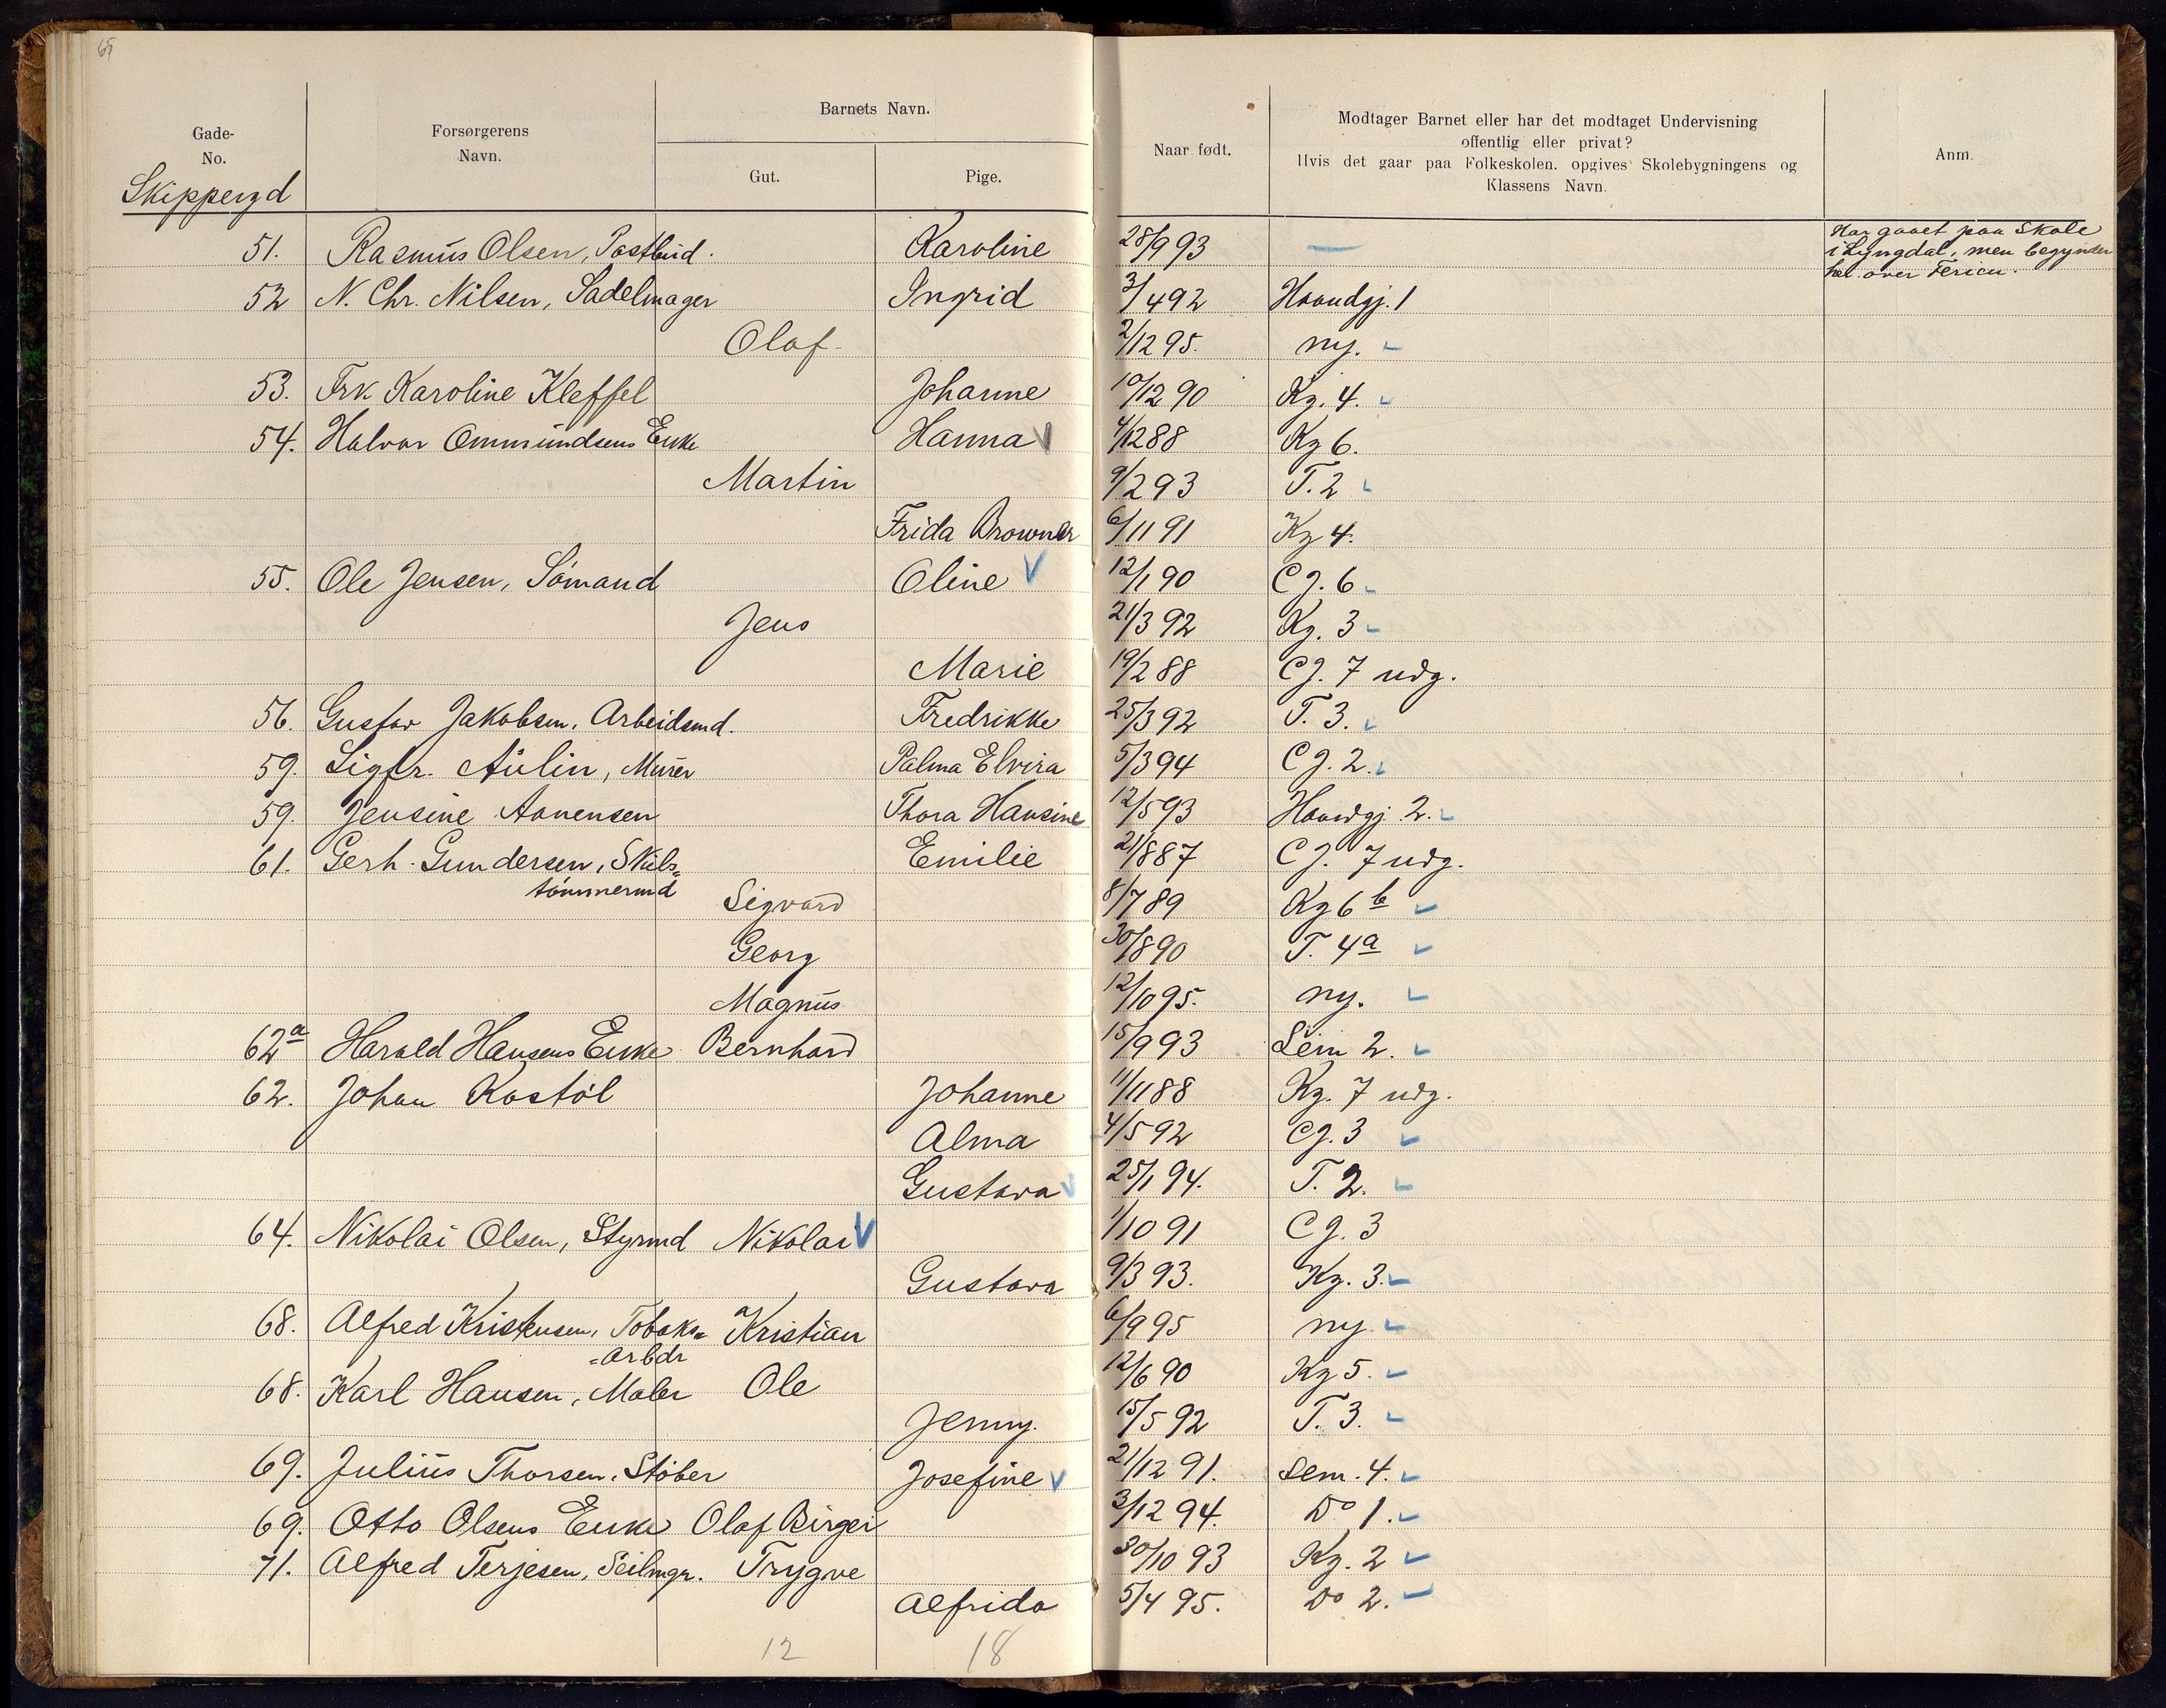 65
Gade-
No.
Forsørgerens
Navn.
Barnets Navn.
Gut.
Pige.
Naar født.
Modtager Barnet eller har det modtaget Undervisning
offentlig eller privat?
Hvis det gaar paa Folkeskolen, opgives Skolebygningens og
Klassens Navn.
Anm.
Skippergd
51. Rasmus Olsen, Postbud. Karoline 28/9 93 — Har gaaet paa Skole
i Lyngdal, men begynder
her over Ferien.
52 N. Chr. Nilsen, Sadelmager Ingrid 3/4 92 Haandgj. 1
Olaf 2/12 95. ny.
53. Frk Karoline Kleffel Johanne 10/12 90 Kg. 4.
54. Halvor Ommundsens Enke Hanna 4/12 88 Kg 6.
Martin 9/2 93 T. 2
Frida Browner 6/11 91 Kg 4.
55. Ole Jensen, Sömand Oline 12/1 90 CJ. 6
Jens 21/3 92 Kg. 3
Marie 19/2 88 CJ. 7 udg.
56. Gustav Jakobsen, Arbeidsmd. Fredrikke 25/3 92 T. 3.
59. Sigfr. Aulin, Murer Palma Elvira 5/3 94 CJ. 2.
59. Jensine Aanensen Thora Hansine 12/5 93 Haandgj 2.
61. Gerh. Gundersen, Skibs=
tömmermd Emilie 21/8 87 CJ. 7 udg.
Sigvard 8/7 89 Kg 6 b
Georg 30/8 90 T. 4a
Magnus 12/10 95. ny.
62a Harald Hansens Enke Bernhard 15/9 93 Sem 2.
62. Johan Rostöl Johanne 11/11 88 Kg. 7 udg.
Alma 4/5 92 CJ. 3
Gustava 25/1 94. T. 2.
64. Nikolai Olsen, Styrmd Nikolai 1/10 91 CJ. 3
Gustava 9/3 93. Kg. 3.
68. Alfred Kristensen, Tobaks=
=Arbdr Kristian 6/9 95 ny.
68. Karl Hansen, Maler Ole 12/6 90 Kg 5.
Jenny. 15/5 92 T. 3.
69. Julius Thorsen, Stöber Josefine 21/12 91. Sem. 4.
69. Otto Olsens Enke Olaf Birger 3/12 94. Do 1.
71. Alfred Terjesen, Seilmgr. Trygve 30/10 93 Kg. 2
Alfrida 5/4 95. Do 2.
12 18